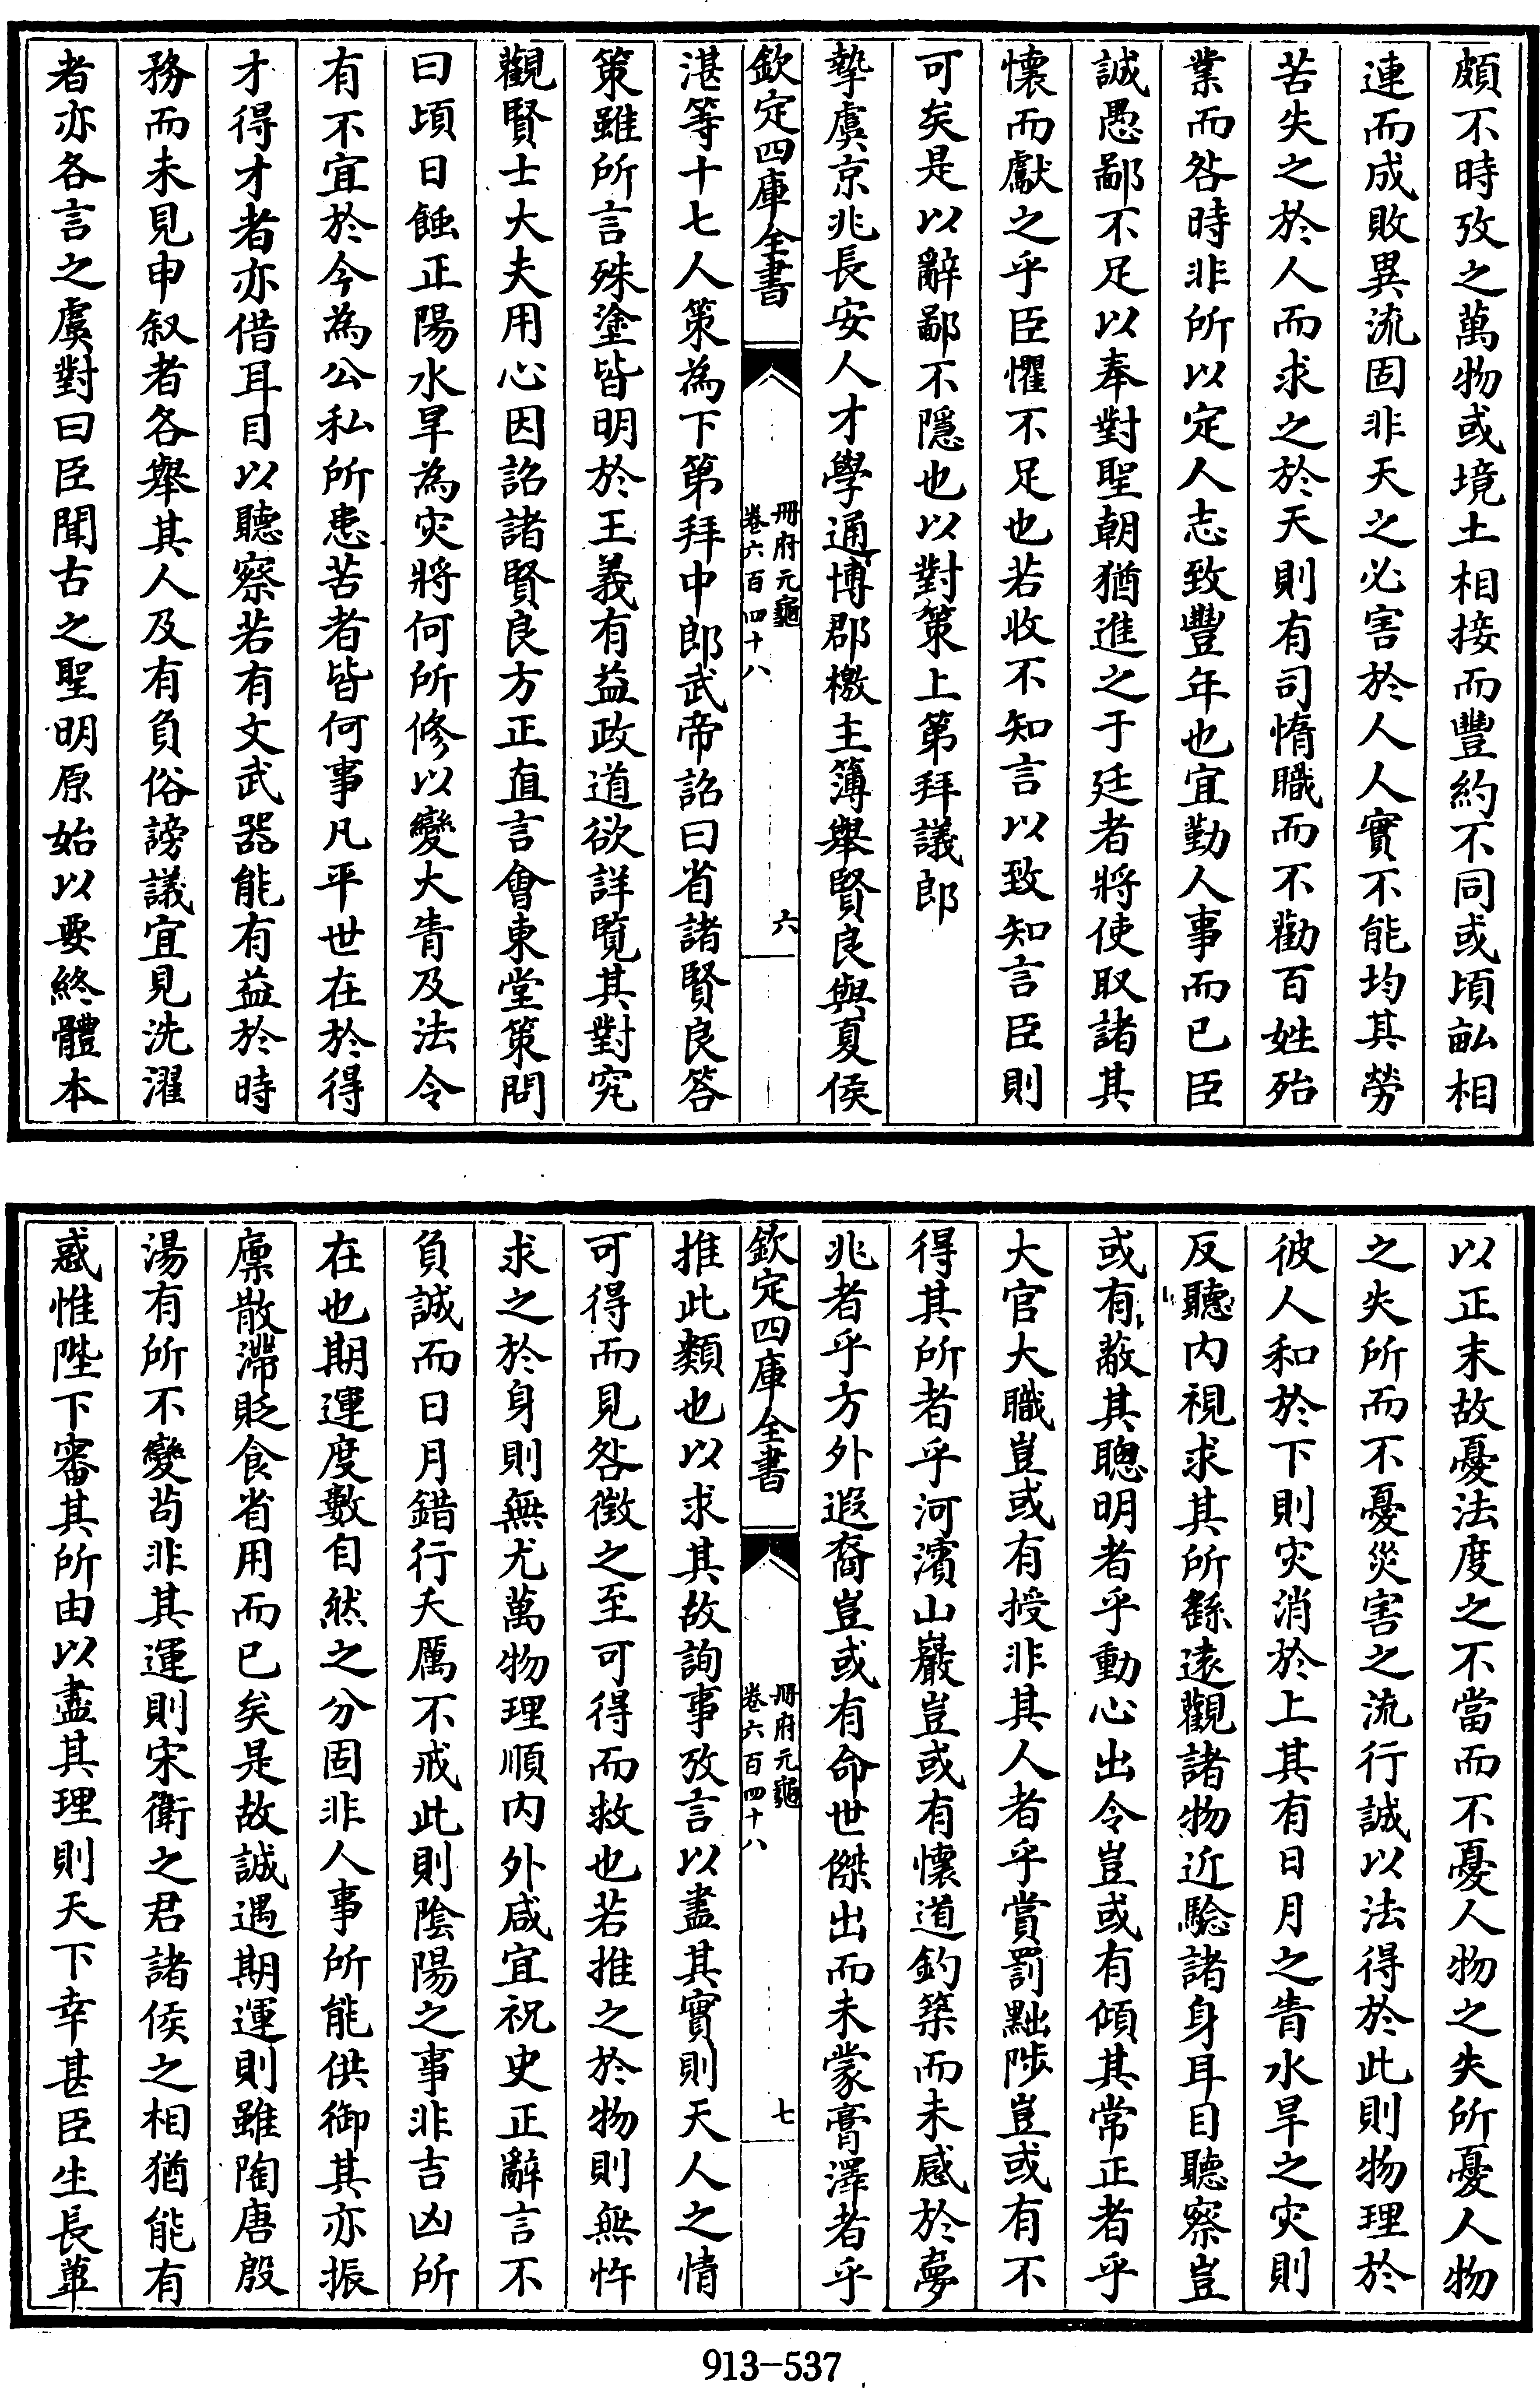 頗不時攷之萬物或境土相接而豐約不同或頃畝相
連而成敗異流固非天之必害於人人實不能均其勞
苦失之於人而求之於天則有司惰職而不勸百姓殆
業而咎時非所以定人志致豐年也宜勤人事而已臣
誠愚鄙不足以奉對聖朝猶進之于廷者將使取諸其
懷而獻之乎臣懼不足也若收不知言以致知言臣則
可矣是以辭鄙不隱也以對策上第拜議郎
摯虞京兆長安人才學通博郡檄主簿舉賢良與夏侯
欽定四庫全書
冊府元龜
卷六百四十八
六
湛等十七人策為下第拜中郎武帝詔曰省諸賢良答
策雖所言殊塗皆明於王義有益政道欲詳覽其對究
觀賢士大夫用心因詔諸賢良方正直言會東堂策問
曰頃日蝕正陽水旱為灾將何所修以變大眚及法令
有不宜於今為公私所患苦者皆何事凡平世在於得
才得才者亦借耳目以聽察若有文武器能有益於時
務而未見申叙者各舉其人及有負俗謗議宜見洗濯
者亦各言之虞對曰臣聞古之聖明原始以要終體本
以正末故憂法度之不當而不憂人物之失所憂人物
之失所而不憂災害之流行誠以法得於此則物理於
彼人和於下則灾消於上其有日月之眚水旱之灾則
反聽內視求其所繇遠觀諸物近驗諸身耳目聽察豈
或有蔽其聰明者乎動心出令豈或有傾其常正者乎
大官大職豈或有授非其人者乎賞罰黜陟豈或有不
得其所者乎河濱山巖豈或有懷道釣築而未感於夢
兆者乎方外遐裔豈或有命世傑出而未蒙膏澤者乎
欽定四庫全書
冊府元龜
卷六百四十八
七
推此類也以求其故詢事攷言以盡其實則天人之情
可得而見咎徵之至可得而救也若推之於物則無忤
求之於身則無尤萬物理順內外咸宜祝史正辭言不
負誠而日月錯行夭厲不戒此則陰陽之事非吉凶所
在也期運度數自然之分固非人事所能供御其亦振
廩散滯貶食省用而已矣是故誠遇期運則雖陶唐殷
湯有所不變苟非其運則宋衛之君諸侯之相猶能有
惑惟陛下審其所由以盡其理則天下幸甚臣生長蓽
913-537